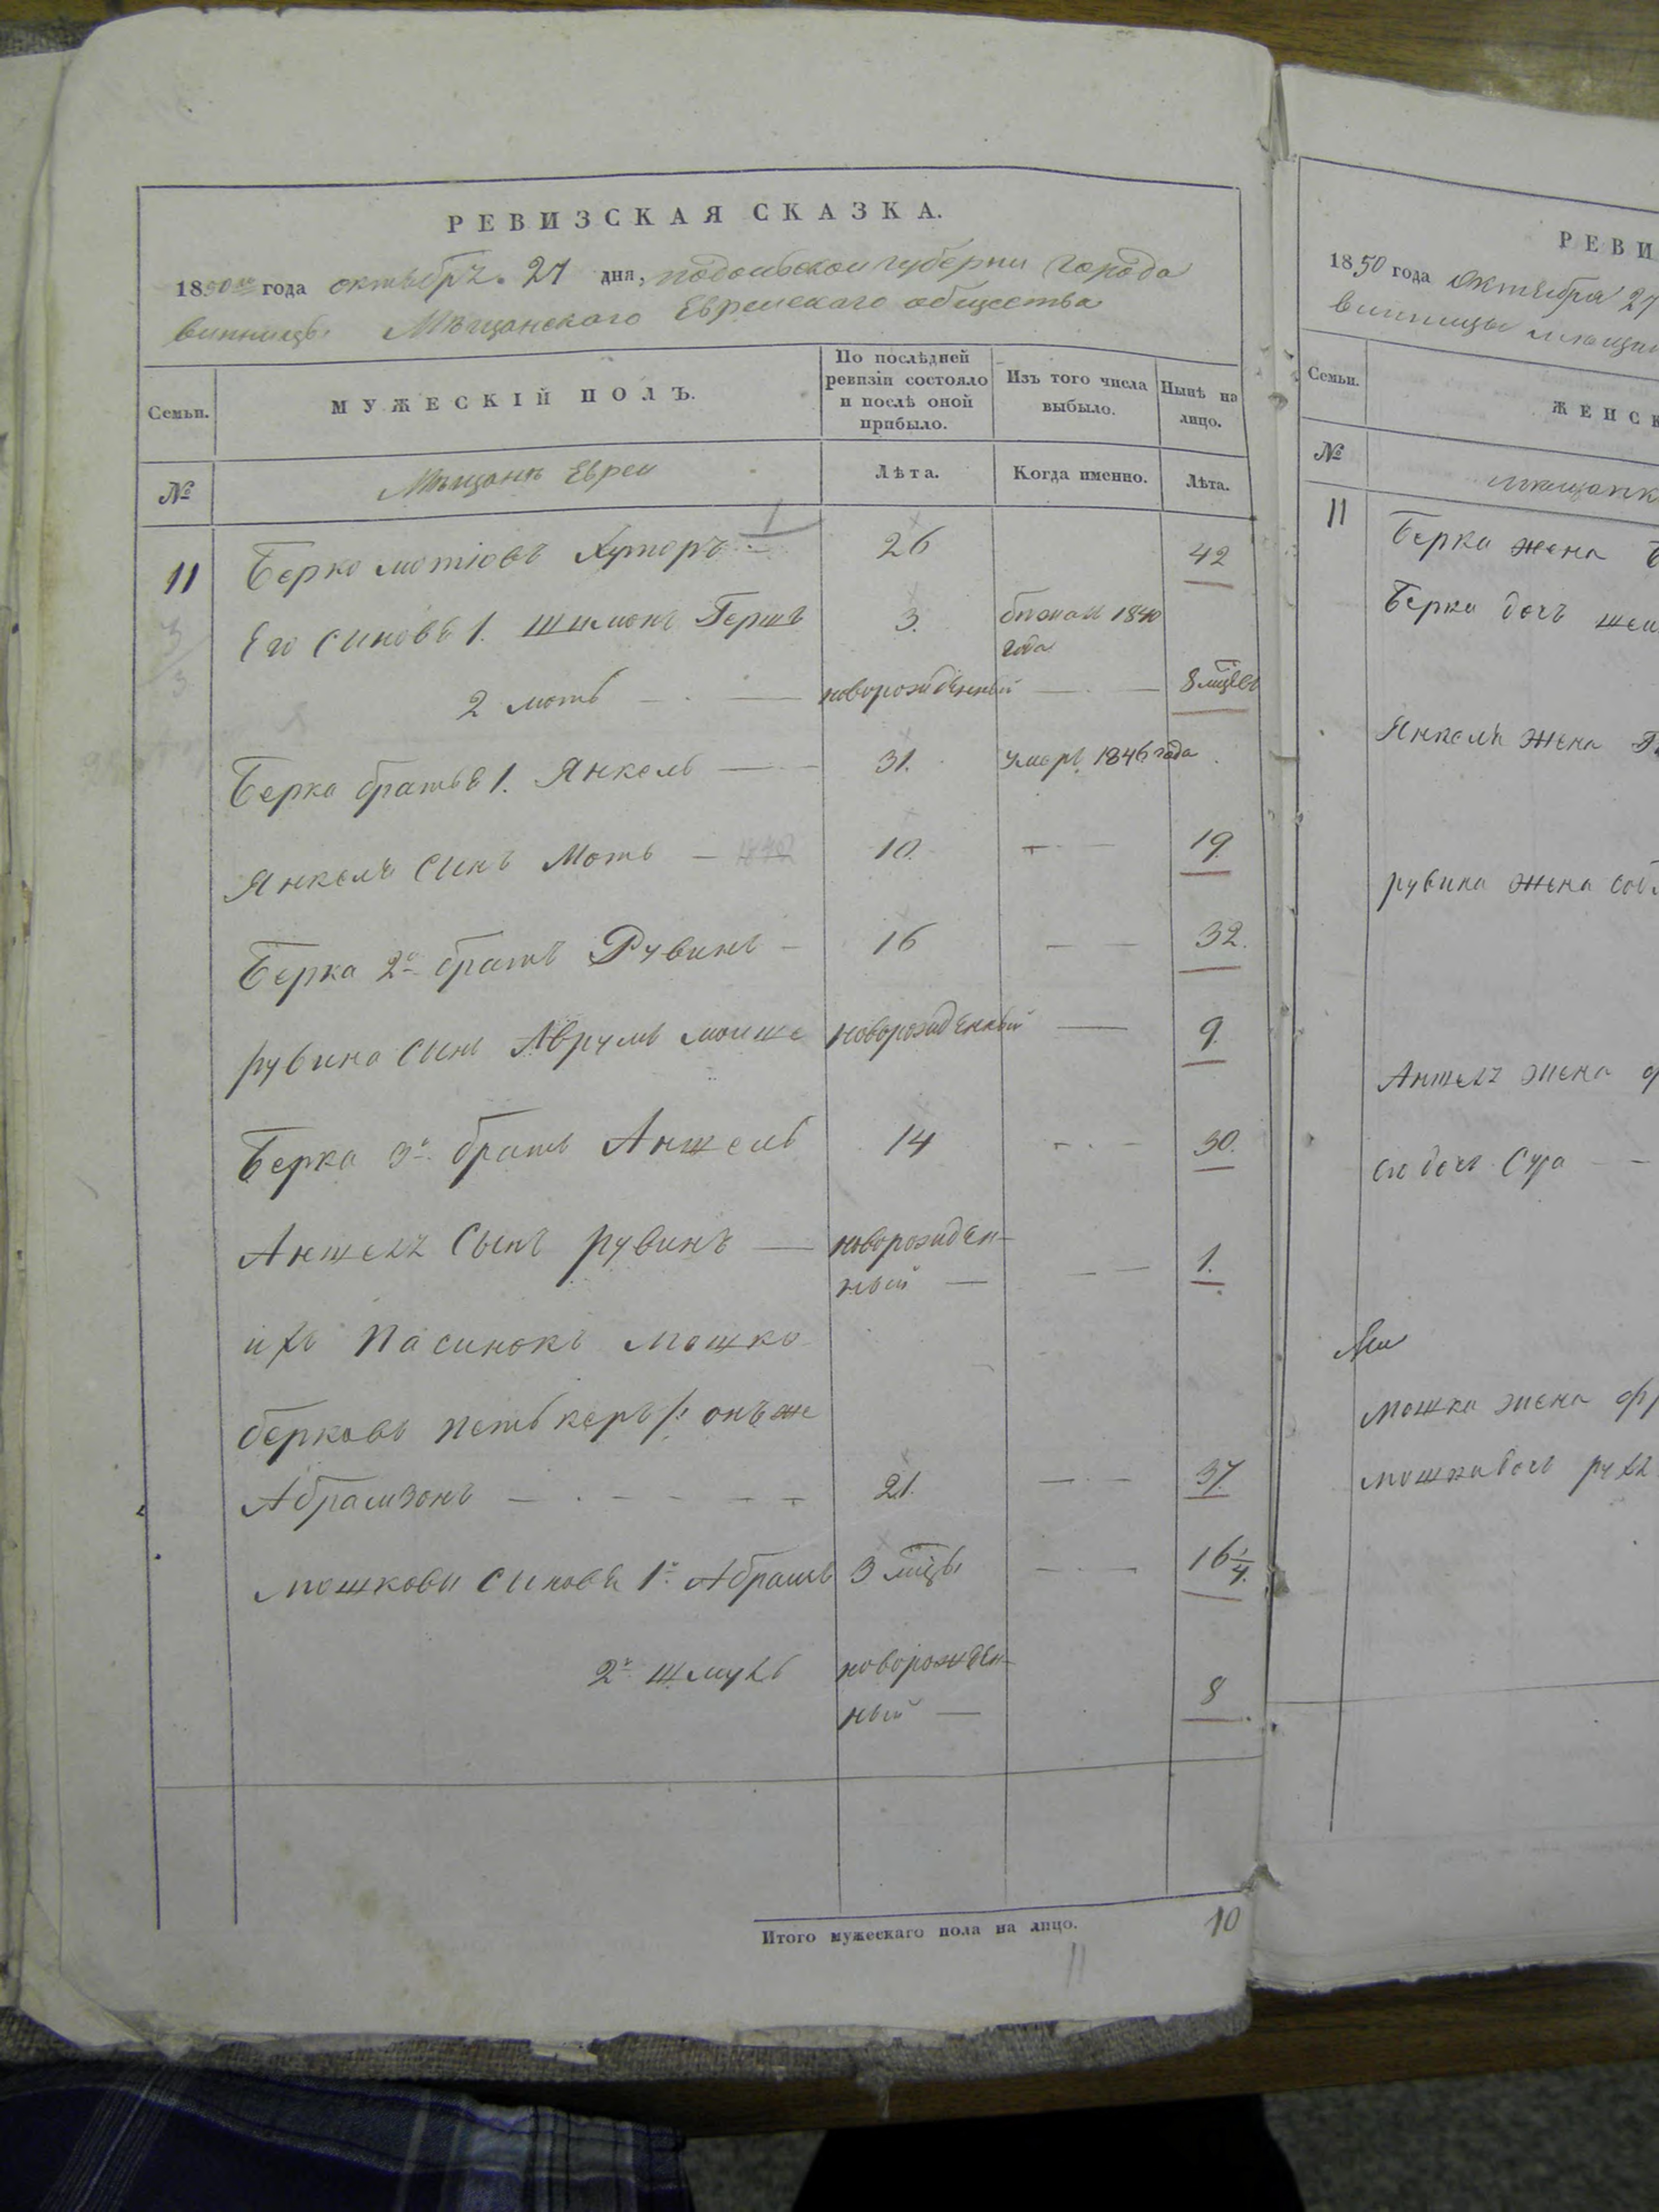 РЕВИЗСКАЯ СКАЗКА.
1850го года октября 27 дня, подольской губернии города
винницы Мѣщанского Еврейскаго общества
Семьи.
МУЖЕСКІЙ ПОЛЪ.
По послѣдней ревизіи состояло и послѣ оной прибыло.
Изъ того числа выбыло.
Нынѣ на лицо.
№
Мѣщане Евреи
Лѣта.
Когда именно.
Лѣта.
11 Берко мотіовъ Хуторъ 26 42
Его синовья 1. Шимонъ Гершъ 3. бѣжалъ 1840
года
2 моть новорожденный 8 мцевъ
Берка братья 1. Янкель 31. умеръ 1846 года
Янкеля синъ Моть 10. 19.
Берка 2й братъ Рувинъ 16 32.
рувина синъ Аврумъ моише новорожденный 9.
Берка 3й братъ Аншель 14 30.
Аншеля Сынъ рувинъ новорожден-
ный 1.
ихъ Пасинокъ мошко
берковъ онъ же
Абрамзонъ 21. 37.
мошкови синовья 1й Абрамъ 3 мцы 16 1/4.
2й шмуль новорожден-
ный 8
Итого мужескаго пола на лицо. 10
11
РЕВИ
1850 года Октября 27
винницы мѣщан
Семьи.
ЖЕНСК
№
11
Берка жена
Берка дочь
Янкеля жена
рувина жена
Аншеля жена
дочь Сура
мошка жена
мошка дочь